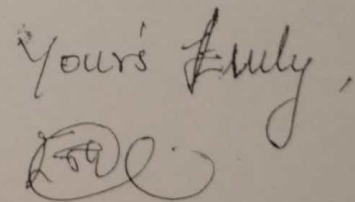 Your's truly,